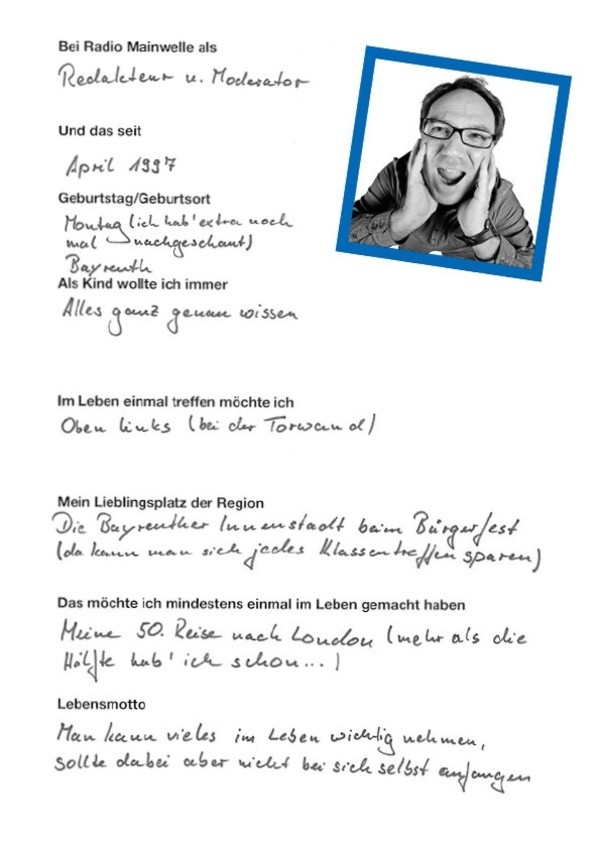 Bei Radio Mainwelle als
Redakteur u. Moderator
Und das seit
April 1997
Geburtstag/Geburtsort
Montag (ich hab' extra noch
mal nachgeschaut)
Bayreuth
Als Kind wollte ich immer
Alles ganz genau wissen
Im Leben einmal treffen möchte ich
Oben links (bei der Torwand)
Mein Lieblingsplatz der Region
Die Bayreuther Innenstadt beim Bürgerfest
(da kann man sich jedes Klassentreffen sparen)
Das möchte ich mindestens einmal im Leben gemacht haben
Meine 50. Reise nach London (mehr als die
Hälfte hab' ich schon...)
Lebensmotto
Man kann vieles im Leben wichtig nehmen,
sollte dabei aber nicht bei sich selbst anfangen